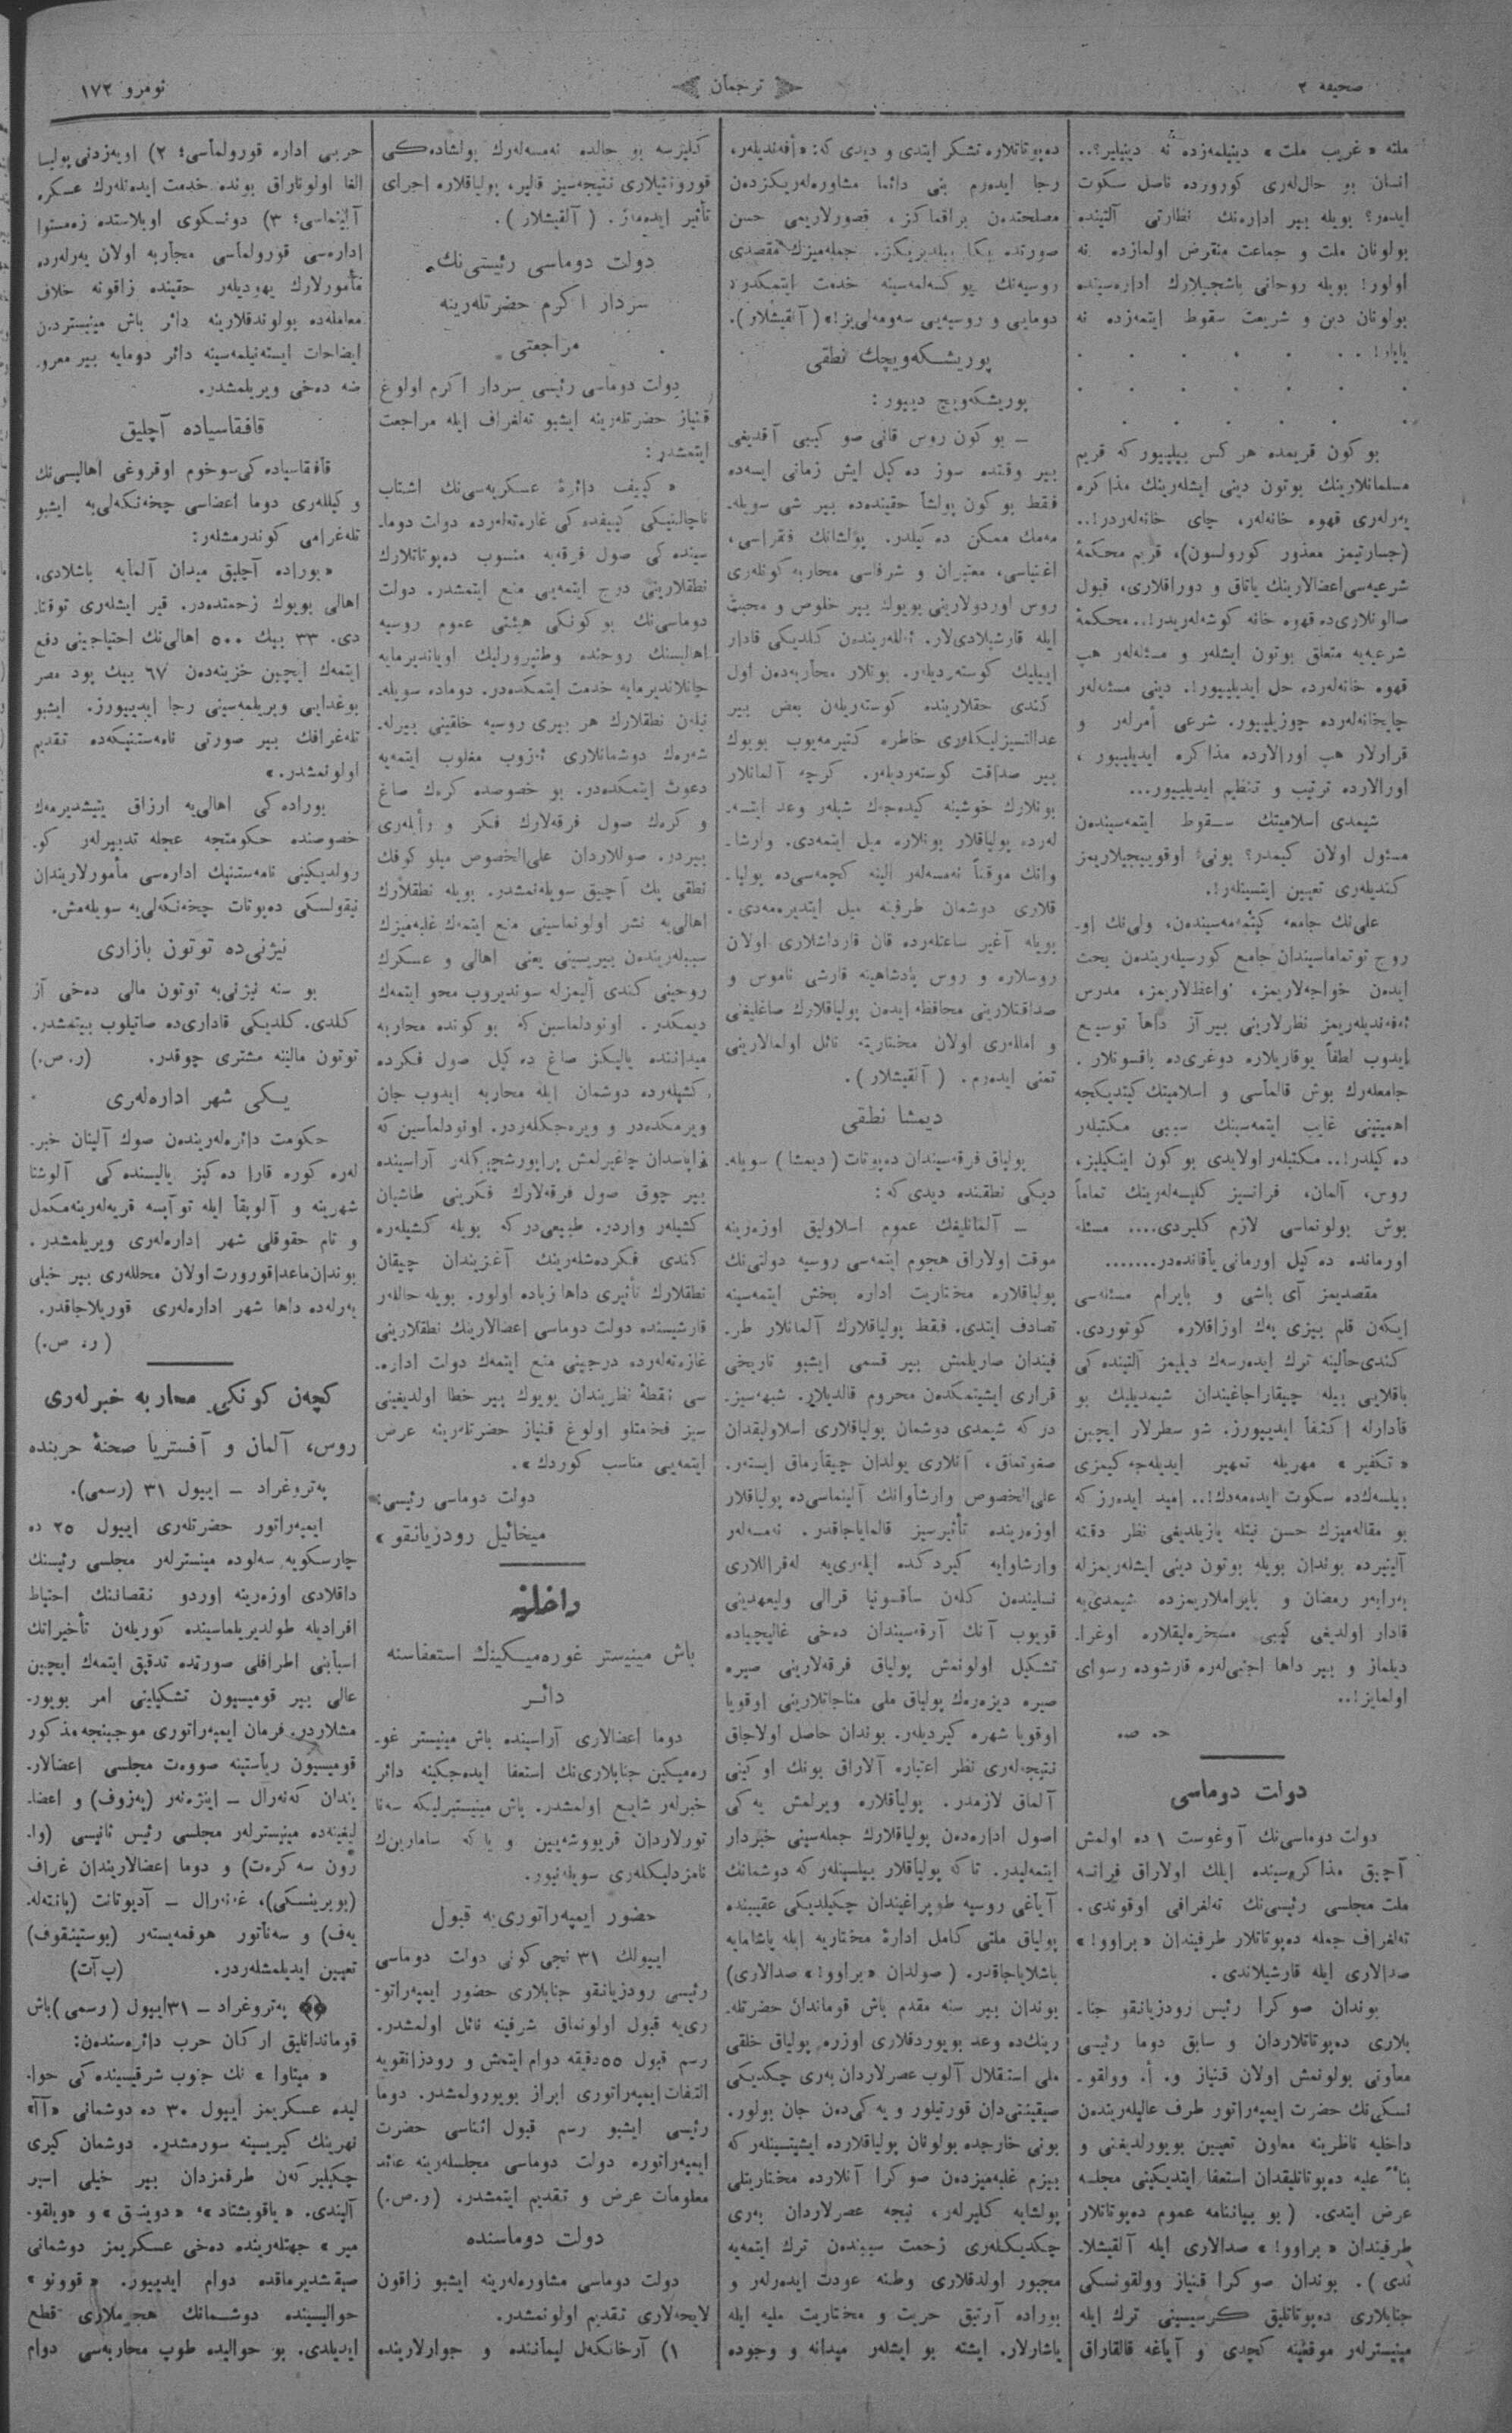 صحیفه ۲
ترجمان
نومرو ۱۷۲
ملته « غریب ملت » دینیلمه‌زده نه دینیلیر؟..
انسان بو حال‌لەری کوروزده ناصل سکوت
ایدەر؟ بویله بیر اداره‌نك نظارتی آلتینده
بولونان ملت و جماعت منقرض اولمازده نه
اولور! بویله روحانی باشجیلارك اداره‌سینده
بولونان دین و شریعت سقوط ایتمه‌زده نه
یاپار!
بو کون قریمده هر کس بیلییور که قریم
مسلمانلارینك بوتون دینی ایشلەرینك مذاکره
یەرلەری قهوه خانه‌لەر، چای خانه‌لەردر!..
(جسارتیمز معذور کورولسون)، قریم محکمهٔ
شرعیه‌سی اعضالارینك یاتاق و دوراقلاری، قبول
صالونلاری‌ده قهوه خانه کوشه‌لەریدر!.. محکمهٔ
شرعیه‌یه متعلق بوتون ایشلەر و مسئله‌لەر هپ
قهوه خانه‌لەرده حل ایدیلییور!. دینی مسئله‌لەر
چایخانه‌لەرده چوزیلییور. شرعی أمرلەر و
قرارلار هپ اورالارده مذاکره ایدیلییور ،
اورالارده ترتیب و تنظیم ایدیلییور...
شیمدی اسلامیتك سقوط ایتمه‌سیندەن
مسئول اولان کیمدر؟ بونی اوقوییجیلاریمز
کندیلەری تعیین ایتسینلەر!.
علی‌نك جامعه کیتمه‌مه‌سیندەن، ولی‌نك او-
روج توتماماسیندان جامع کورسیلەریندەن بحث
ایدەن خواجه‌لاریمز، واعظلاریمز، مدرس
أفەندیلەریمز نظرلارینی بیر آز داها توسیع
ایدوب لطفاً یوقاریلاره دوغری‌ده باقسونلار .
جامعلەرك بوش قالماسی و اسلامیتك کیتدیکجه
اهمیتینی غایب ایتمه‌سینك سببی مکتبلەر
دە کیلدر!.. مکتبلەر اولایدی بو کون اینکیلیز،
روس، آلمان، فرانسیز کلیسه‌لەرینك تماماً
بوش بولونماسی لازم کلیردی.... مسئله
اورمانده ده کیل اورمانی یاقانده‌در.......
مقصدیمز آی باشی و بایرام مسئله‌سی
ایکەن قلم بیزی یەك اوزاقلاره کوتوردی.
کندی حالینه ترك ایدەرسەك دیلیمز آلتینده کی
باقلایی بیله چیقاراجاغیندان شیمدیلیك بو
قادارله اکتفأ ایدییورز. شو سطرلار ایچین
« تکفیر » مهریله تمهیر ایدیلەجه کیمزی
بیلسەك‌ده سکوت ایدەمەدك!.. امید ایدەرز که
بو مقاله‌میزك حسن نیتله یازیلدیغی نظر دقته
آلینیرده بوندان بویله بوتون دینی ایشلەریمزله
بەرابەر رمضان و بایراملاریمزده شیمدی‌یه
قادار اولدیغی کیبی مسخره‌لیقلاره اوغرا-
دیلماز و بیر داها اجنبی‌لەره قارشوده رسوای
اولمایز!..
ح. ص.
دولت دوماسی
دولت دوماسی‌نك آوغوست ۱ ده اولمش
آچیق مذاکره‌سینده ایلك اولاراق فرانسه
ملت مجلسی رئیسی‌نك تەلغرافی اوقوندی.
تەلغراف جمله دەپوتاتلار طرفیندان « براوو! »
صدالاری ایله قارشیلاندی.
بوندان صوکرا رئیس رودزیانقو جنا-
بلاری دەپوتاتلاردان و سابق دوما رئیسی
معاونی بولونمش اولان قنیاز و. آ. وولقو-
نسکی‌نك حضرت ایمپەراتور طرف عالیلەریندەن
داخلیه ناظرینه معاون تعیین بویورلدیغنی و
بناءً علیه دەپوتاتلیقدان استعفا ایتدیکینی مجلسه
عرض ایتدی. (بو بیاننامه عموم دەپوتاتلار
طرفیندان « براوو! » صدالاری ایله آلقیشلا-
ندی). بوندان صوکرا قنیاز وولقونسکی
جنابلاری دەپوتاتلیق کرسیسینی ترك ایله
مینیسترلەر موقعینه کچدی و آیاغه قالقاراق
دەپوتاتلاره تشکر ایتدی و دیدی که: « أفەندیلەر،
رجا ایدەرم بنی دائما مشاوره‌لەریکزدەن
مصلحتدەن براقماکز، قصورلاریمی حسن
صورتده بکا بیلدیریکز. جمله‌میزك مقصدی
روسیه‌نك یوکسەلمه‌سینه خدمت ایتمکدر.
دومایی و روسیه‌یی سەومه‌لی‌یز!» (آلقیشلار).
پوریشکەویچك نطقی
پوریشکەویچ دییور:
— بو کون روس قانی صو کیبی آقدیغی
بیر وقتده سوز ده کیل ایش زمانی ایسه‌ده
فقط بو کون پولشا حقینده‌ده بیر شی سویله-
مه‌مك ممکن ده کیلدر. پولشانك فقراسی،
اغنیاسی، معتبران و شرفاسی محاربه کونلەری
روس اوردولارینی بویوك بیر خلوص و محبت
ایله قارشیلادی‌لار. أللەریندەن کلدیکی قادار
ایبلیك کوستەردیلەر. بونلار محاربه‌دەن اول
کندی حقلارینده کوستەریلەن بعض بیر
عدالتسیزلیکلەری خاطره کتیرمه‌یوب بویوك
بیر صداقت کوستەردیلەر. کرچه آلمانلار
بونلارك خوشینه کیده‌جەك شیلەر وعد ایتسه-
لەرده پولیاقلار بونلاره میل ایتمه‌دی. وارشا-
وانك موقتاً نەمسه‌لەر الینه کچمه‌سی‌ده پولیا-
قلاری دوشمان طرفینه میل ایتدیره‌مەدی.
بویله آغیر ساعتلەرده قان قارداشلاری اولان
روسلاره و روس پادشاهینه قارشی ناموس و
صداقتلارینی محافظه ایدەن پولیاقلارك صاغلیغی
و امللەری اولان مختاریته نائل اولمالارینی
تمنی ایدەرم. (آلقیشلار).
دیمشا نطقی
پولیاق فرقه‌سیندان دەپوتات (دیمشا) سویله-
دیکی نطقنده دیدی که:
— آلمانلیغك عموم اسلاولیق اوزەرینه
موقت اولاراق هجوم ایتمه‌سی روسیه دولتی‌نك
پولیاقلاره مختاریت اداره بخش ایتمه‌سینه
تصادف ایتدی. فقط پولیاقلارك آلمانلار طر-
فیندان صاریلمش بیر قسمی ایشبو تاریخی
قراری ایشیتمکدەن محروم قالدیلار. شبهه‌سیز-
درکه شیمدی دوشمان پولیاقلاری اسلاولیقدان
صغرتماق، آنلاری یولدان چیقارماق ایستەر.
علی‌الخصوص وارشاوانك آلینماسی‌ده پولیاقلار
اوزەرینده تأثیرسیز قالمایاجاقدر. نەمسه‌لەر
وارشاوایه کیردکده ایلەری‌یه لەقراللاری
نسلیندەن کلەن ساقسونیا قرالی ولیعهدینی
قویوب آنك آرقه‌سیندان دەخی غالیچیاده
تشکیل اولونمش پولیاق فرقه‌لارینی صیره
صیره دیزەرەك پولیاق ملی مناجاتلارینی اوقویا
اوقویا شهره کیردیلەر. بوندان حاصل اولاجاق
نتیجه‌لەری نظر اعتباره آلاراق بونك اوکینی
آلماق لازمدر. پولیاقلاره ویرلمش یه‌کی
اصول اداره‌دەن پولیاقلارك جمله‌سینی خبردار
ایتمه‌لیدر. تاکه پولیاقلار بیلسینلەر که دوشمانك
آیاغی روسیه طوپراغیندان چکیلدیکی عقیبینده
پولیاق ملتی کامل ادارهٔ مختاریه ایله یاشامایه
باشلایاجاقدر. (صولدان « براوو! » صدالاری)
بوندان بیر سنه مقدم باش قوماندان حضرتلە-
رینك‌ده وعد بویوردقلاری اوزره پولیاق خلقی
ملی استقلال آلوب عصرلاردان بەری چکدیکی
صیقینتی‌دان قورتیلور و یه کی‌دەن جان بولور.
بونی خارجده بولونان پولیاقلارده ایشیتسینلەر که
بیزم غلبه‌میزدەن صوکرا آنلارده مختاریتلی
پولشایه کلیرلەر، نیچه عصرلاردان بەری
چکدیکلەری زحمت سبیندەن ترك ایتمه‌یه
مجبور اولدقلاری وطنه عودت ایدەرلەر و
بوراده آرتیق حریت و مختاریت ملیه ایله
یاشارلار. ایشته بو ایشلەر میدانه و وجوده
کلیرسه بو حالده نەمسه‌لەرك پولشاده‌کی
قورونتیلاری نتیجه‌سیز قالیر، پولیاقلاره اجرای
تأثیر ایدەمز. (آلقیشلار).
دولت دوماسی رئیسی‌نك
سردار اکرم حضرتلەرینه
مراجعتی
دولت دوماسی رئیسی سردار اکرم اولوغ
قنیاز حضرتلەرینه ایشبو تەلغراف ایله مراجعت
ایتمشدر:
« کییف دائرهٔ عسکریه‌سی‌نك اشتاب
ناچالنیکی کییفده کی غازه‌ته‌لەرده دولت دوما-
سینده کی صول فرقه‌یه منسوب دەپوتاتلارك
نطقلارینی درج ایتمه‌یی منع ایتمشدر. دولت
دوماسی‌نك بو کونکی هیئتی عموم روسیه
اهالیسنك روحنده وطنپرورلیك اویاندیرمایه
جانلاندیرمایه خدمت ایتمکده‌در. دوماده سویله-
نیلەن نطقلارك هر بیری روسیه خلقینی بیرلە-
شەرەك دوشمانلاری أزوب مغلوب ایتمه‌یه
دعوت ایتمکده‌در. بو خصوصده کرەك صاغ
و کرەك صول فرقه‌لارك فکر و رأیلەری
بیردر. صوللاردان علی‌الخصوص میلو کوفك
نطقی پك آچیق سویله‌نمشدر. بویله نطقلارك
اهالی‌یه نشر اولونماسینی منع ایتمەك غلبه‌میزك
سببلەریندەن بیریسینی یعنی اهالی و عسکرك
روحینی کندی ألیمزله سوندیروب محو ایتمەك
دیمکدر. اونودلماسین که بو کونده محاربه
میداننده یالیکز صاغ ده کیل صول فکرده
کشیلەرده دوشمان ایله محاربه ایدوب جان
ویرمکده‌در و ویره‌جکلەردر. اونودلماسین که
بیر چوق صول فرقه‌لارك فکرینی طاشیان
کشیلەر واردر. طبیعی‌در که بویله کشیلەره
کندی فکرده‌شلەرینك آغزیندان چیقان
نطقلارك تأثیری داها زیاده اولور. بویله حاللەر
قارشیسنده دولت دوماسی اعضالارینك نطقلارینی
غازه‌ته‌لەرده درجینی منع ایتمەك دولت اداره-
سی نقطهٔ نظریندان بویوك بیر خطا اولدیغینی
سیز فخامتلو اولوغ قنیاز حضرتلەرینه عرض
ایتمه‌یی مناسب کوردك ».
دولت دوماسی رئیسی:
میخائیل رودزیانقو »
داخلیه
باش مینیستر غوره‌میکینك استعفاسنه
دائر
دوما اعضالاری آراسینده باش مینیستر غو-
ره‌میکین جنابلاری‌نك استعفا ایده‌جکینه دائر
خبرلەر شایع اولمشدر. باش مینیستیرلیکه سەنا
تورلاردان قریووشه‌یین و یاکه سامارین‌ك
نامزدلیکلەری سویله‌نیور.
حضور ایمپەراتوری‌یه قبول
ایبولك ۳۱ نجی کونی دولت دوماسی
رئیسی رودزیانقو جنابلاری حضور ایمپەراتو-
ری‌یه قبول اولونماق شرفینه نائل اولمشدر.
رسم قبول ۵۵ دقیقه دوام ایتمش و رودزانقویه
التفات ایمپەراتوری ابراز بویورولمشدر. دوما
رئیسی ایشبو رسم قبول اثناسی حضرت
ایمپەراتوره دولت دوماسی مجلسلەرینه عائد
معلومات عرض و تقدیم ایتمشدر. (ر.ص.)
دولت دوماسنده
دولت دوماسی مشاوره‌لەرینه ایشبو زاقون
لایحه‌لاری تقدیم اولونمشدر.
۱) آرخانکەل لیماننده و جوارلارینده
حربی اداره قورولماسی؛ ۲) اویەزدنی پولیسا
الغا اولوناراق یونده خدمت ایدەنلەرك عسکره
آلینماسی؛ ۳) دونسکوی اوبلاستده زەمستوا
اداره‌سی قورولماسی محاربه اولان یەرلەرده
مأمورلارك یهودیلەر حقینده زاقونه خلاف
معامله‌ده بولوندقلارینه دائر باش مینیستردەن
ایضاحات ایسته‌نیلمه‌سینه دائر دومایه بیر معرو-
ضه دەخی ویریلمشدر.
قافقاسیاده آچلیق
قافقاسیاده کی سوخوم اوقروغی اهالیسی‌نك
وکیللەری دوما اعضاسی چخەنکه‌لی‌یه ایشبو
تلەغرامی کوندرمشلەر:
« بوراده آچلیق میدان آلمایه باشلادی.
اهالی بویوك زحمتده‌در. قیر ایشلەری توقتا-
دی. ۳۳ بیك ۵۰۰ اهالی‌نك احتیاجینی دفع
ایتمەك ایچین خزینه‌دەن ۶۷ بیك پود مصر
بوغدایی ویریلمه‌سینی رجا ایدییورز. ایشبو
تلەغرافك بیر صورتی نامه‌ستنیکه‌ده تقدیم
اولونمشدر.»
بوراده کی اهالی‌یه ارزاق یتیشدیرمەك
خصوصنده حکومتجه عجله تدبیرلەر کو-
رولدیکینی نامه‌ستنیك اداره‌سی مأمورلاریندان
نیقولسکی دەپوتات چخەنکه‌لی‌یه سویله‌مش.
نیژنی‌ده توتون بازاری
بو سنه نیژنی‌یه توتون مالی دەخی آز
کلدی. کلدیکی قاداری‌ده صاتیلوب بیتمشدر.
توتون مالینه مشتری چوقدر. (ر.ص.)
یکی شهر اداره‌لەری
حکومت دائره‌لەریندەن صوك آلینان خبر-
لەره کوره قارا ده کیز یالیسنده کی آلوشتا
شهرینه و آلوپقا ایله توآپسه قریه‌لەرینه مکمل
و تام حقوقلی شهر اداره‌لەری ویریلمشدر.
بوندان ماعدا قورورت اولان محللەری بیر خیلی
یەرلەرده داها شهر اداره‌لەری قوریلاجاقدر.
(ر. ص.)
کچەن کونکی محاربه خبرلەری
روس، آلمان و آفستریا صحنهٔ حربنده
پەتروغراد — ایبول ۳۱ (رسمی).
ایمپەراتور حضرتلەری ایبول ۲۵ ده
چارسکویه سه‌لوده مینیسترلەر مجلسی رئیسنك
داقلادی اوزەرینه اوردو نقصاننك احتیاط
افرادیله طولدیریلماسینده کوریلەن تأخیراتك
اسبابنی اطرافلی صورتده تدقیق ایتمەك ایچین
عالی بیر قومیسیون تشکیلینی امر بویور-
مشلاردر. فرمان ایمپەراتوری موجبنجه مذکور
قومیسیون ریأستینه سووەت مجلسی اعضالار-
یندان کەنەرال — اینژەنەر (پەزوف) و اعضا-
لیغینه‌ده مینیسترلەر مجلسی رئیس ثانیسی (وا-
رون سەکرەت) و دوما اعضالاریندان غراف
(بوبرینسکی)، غەنەرال — آدیوتانت (پانتەلە-
یەف) و سەناتور هوفمەیستەر (پوستینقوف)
تعیین ایدیلمشلەردر. (پ‌آت)
پەتروغراد — ۳۱ ایبول (رسمی) باش
قوماندانلیق ارکان حرب دائره‌سندەن:
« میتاوا » نك جنوب شرقیسینده کی حوا-
لیده عسکریمز ایبول ۳۰ ده دوشمانی «آآ»
نهرینك کیریسینه سورمشدر. دوشمان کیری
چکیلیرکەن طرفمزدان بیر خیلی اسیر
آلیندی. « یاقوبشتاد »، « دوینسق » و « ویلقو-
میر » جهتلەرینده دەخی عسکریمز دوشمانی
صیقشدیرماقده دوام ایدییور. « قوونو »
حوالیسینده دوشمانك هجوملاری قطع
ایدیلدی. بو حوالیده طوپ محاربه‌سی دوام